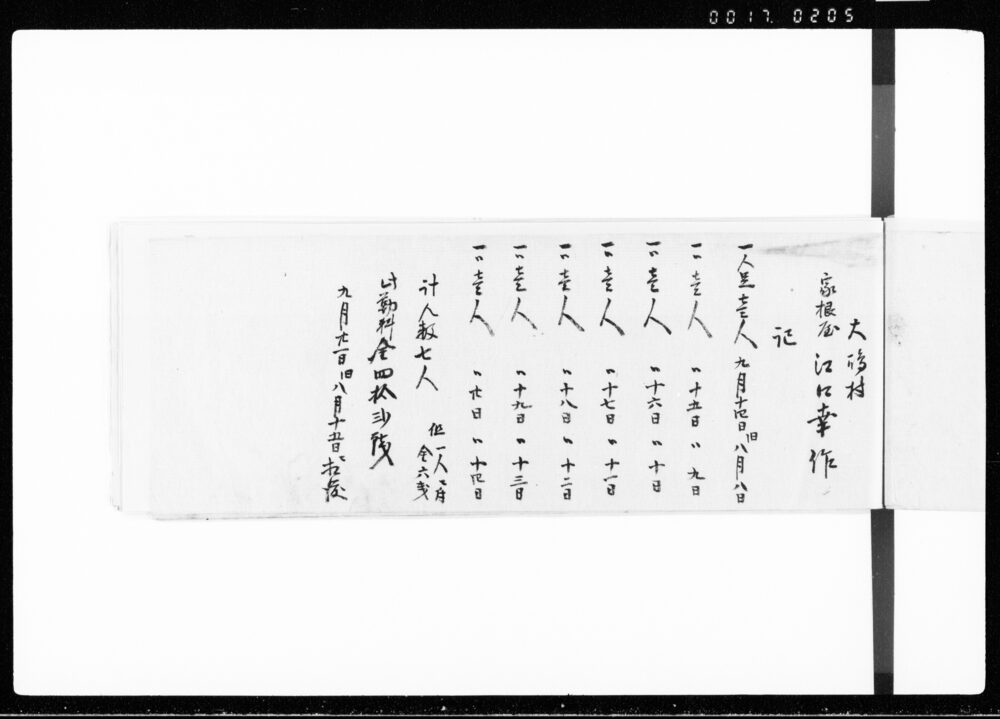 0017. 0205
大嶋村
家根屋 江口幸作
記
一人足壱人 九月十四日旧八月八日
一〃壱人 〃十五日〃九日
一〃壱人 〃十六日〃十日
一〃壱人 〃十七日〃十一日
一〃壱人 〃十八日〃十二日
一〃壱人 〃十九日〃十三日
一〃壱人 〃廿日〃十四日
計人数七人 但一人ニ付
金六銭
此 料金四拾弐銭
九月廿一日旧八月十五日 払渡